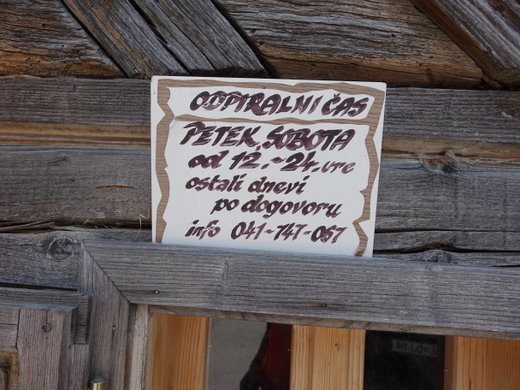 ODPIRALNI ČAS
PETEK, SOBOTA
od 12.-24. ure
ostali dnevi
po dogovoru
info 041-747-057